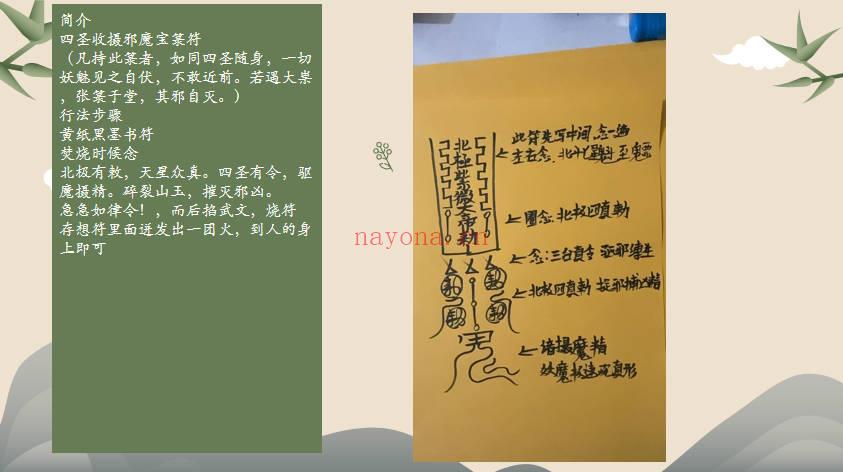 简介
四圣收摄邪魔宝箓符
（凡持此箓者，如同四圣随身，一切
妖魅见之自伏，不敢近前。若遇大祟
，张箓于堂，其邪自灭。）
行法步骤
黄纸黑墨书符
焚烧时候念
北极有敕，天星众真。四圣有令，驱
魔摄精。碎裂山玉，摧灭邪凶。
急急如律令！，而后掐武文，烧符
存想符里面迸发出一团火，到人的身
上即可
北極紫微大帝敕
此符先写中间,念一遍
左右念.北斗
圈念.北极四真勅
念:三台真令
北极四真勅 捉邪捕凶精
摄魔精
妖魔 真形
nayona.cn